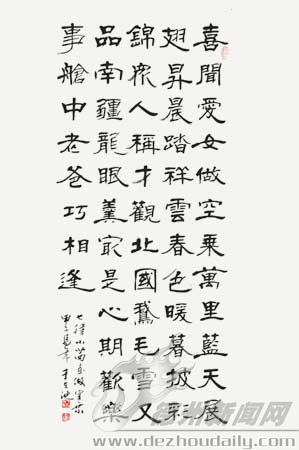 喜聞愛女做空乘萬里藍天展
翅昇晨踏祥雲春色暖暮披彩
錦衆人稱才觀北國鵞毛雪又
品南疆龍眼羹冣是心期歡樂
事艙中老爸巧相逢
德州新闻网
www.dezhoudaily.com